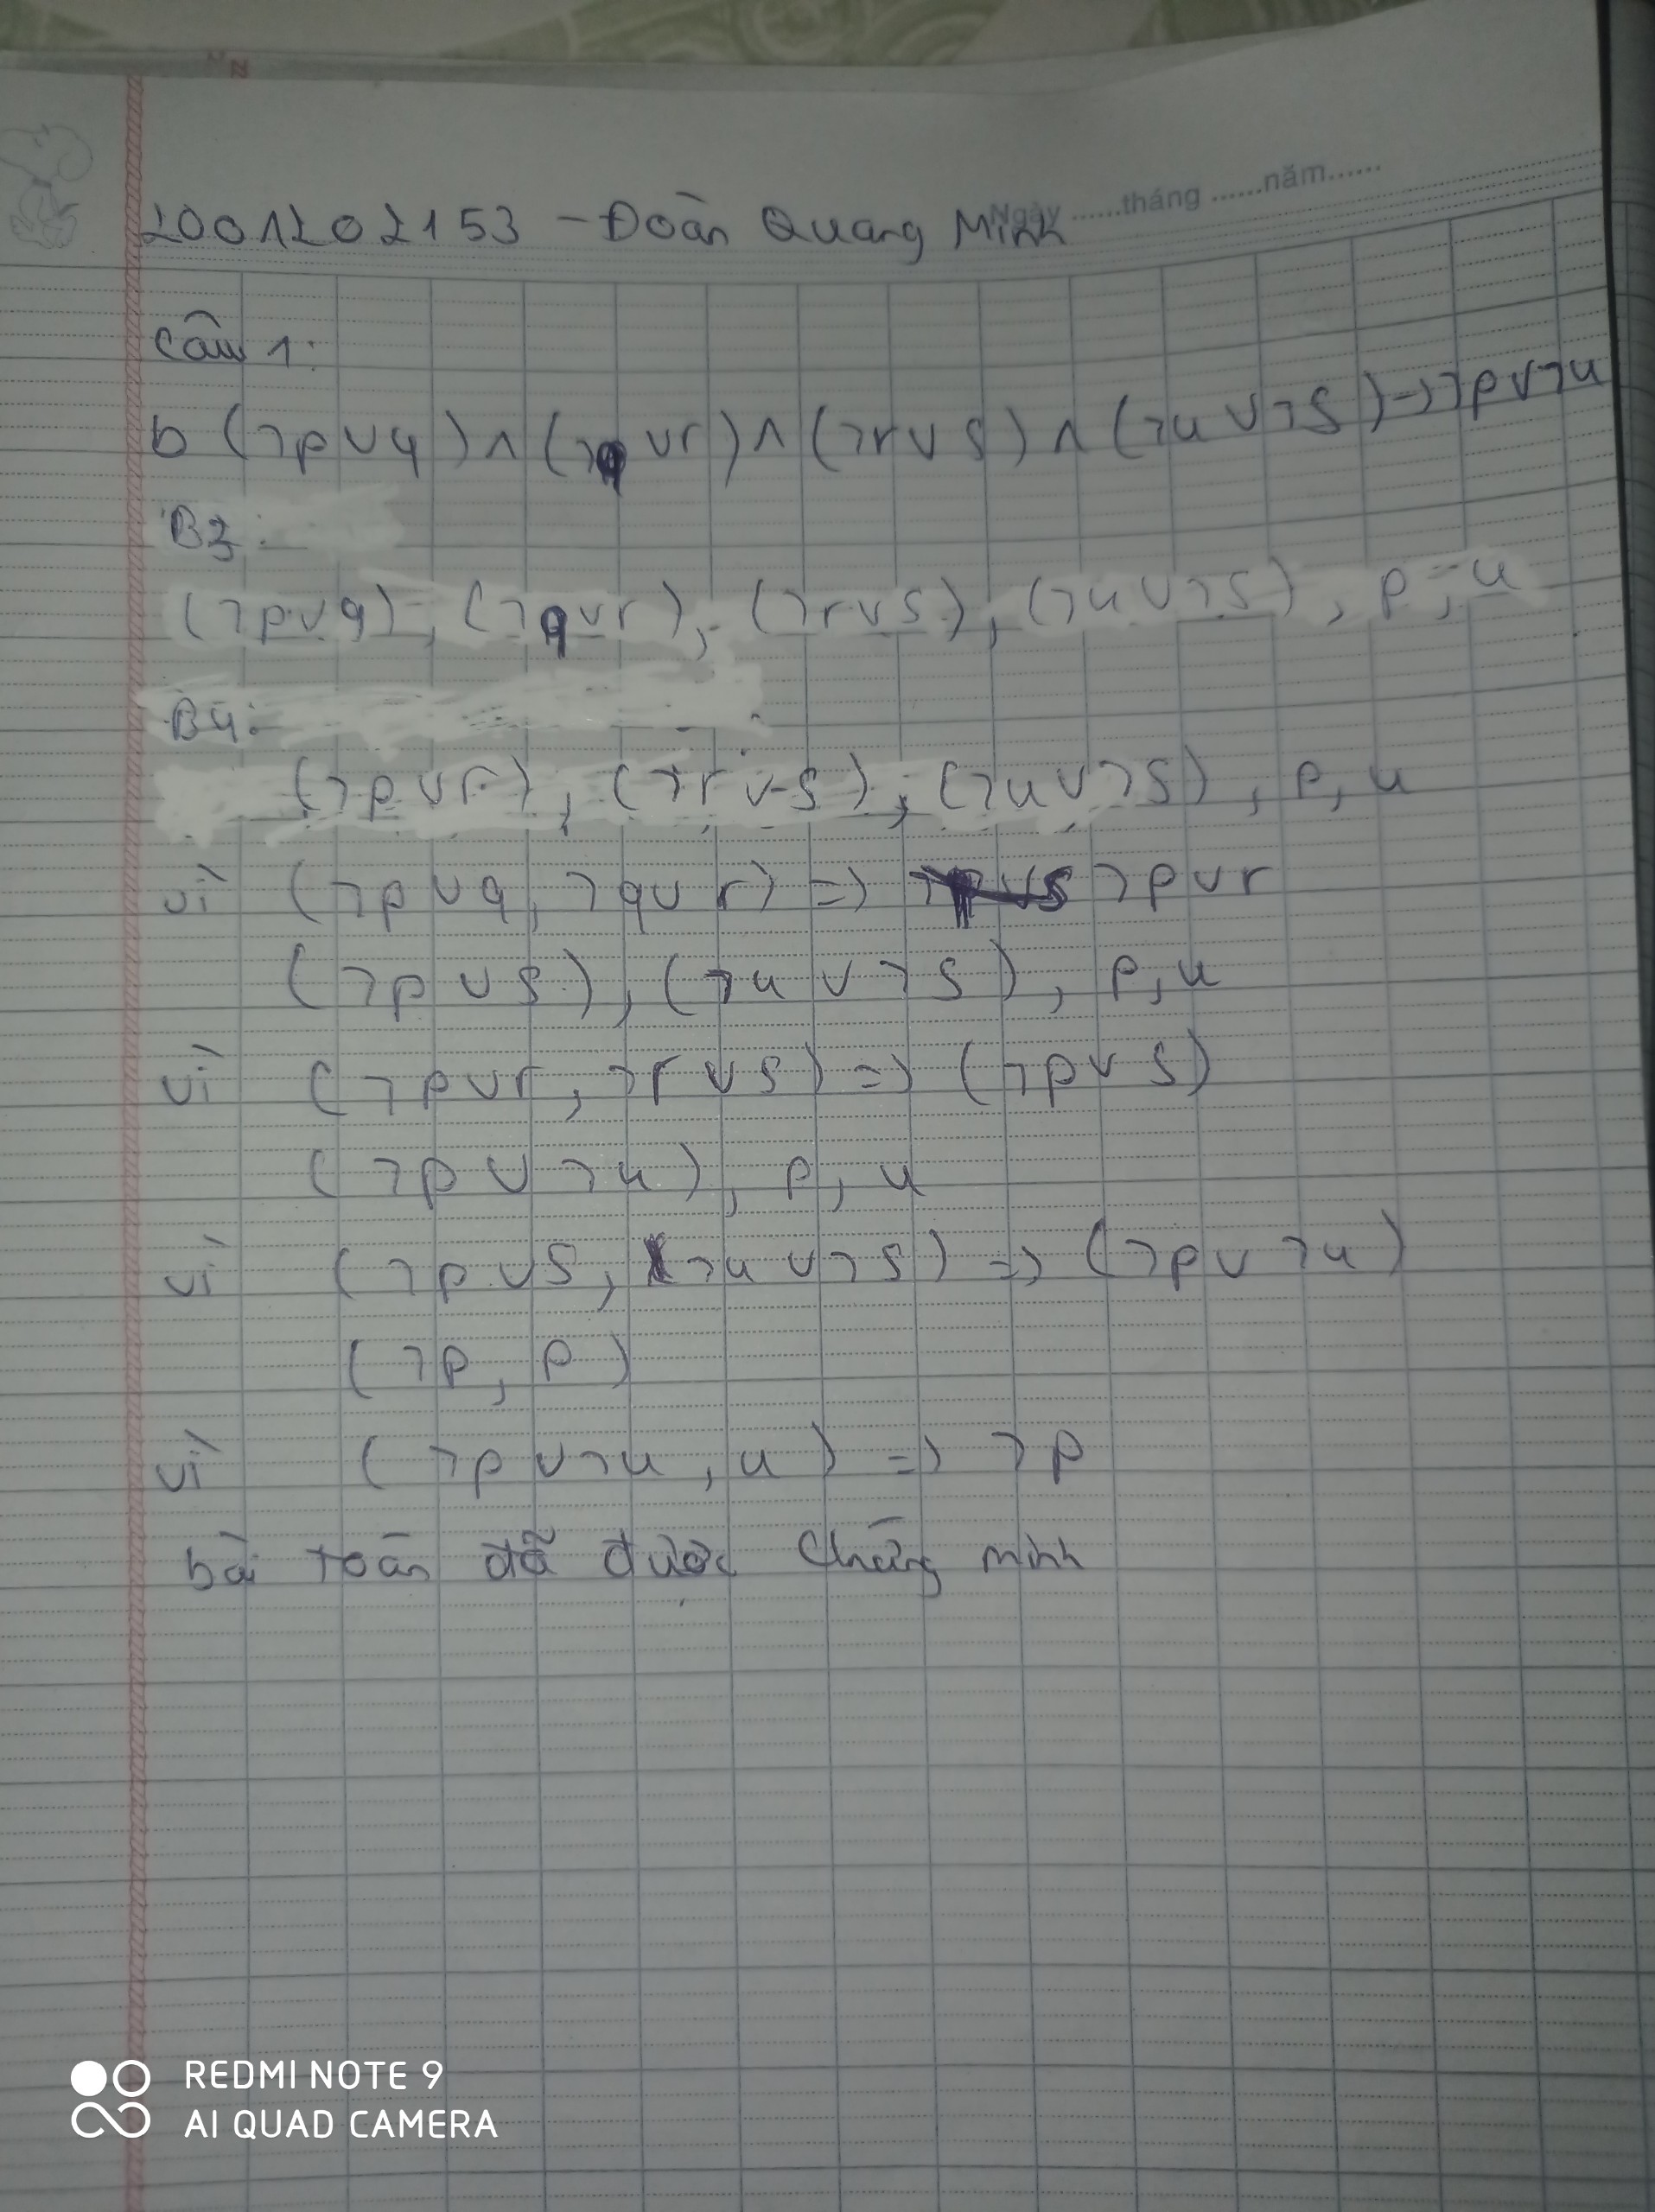 Ngày ......tháng ......năm......
2001202153 - Đoàn Quang Minh
Câu 1:
b (¬p∨q)∧(¬q∨r)∧(¬r∨s)∧(¬u∨¬s)→¬p∨¬u
B3:
(¬p∨q), (¬q∨r), (¬r∨s), (¬u∨¬s), p, u
B4:
(¬p∨r), (¬r∨s), (¬u∨¬s), p, u
vì (¬p∨q, ¬q∨r) => ¬p∨r
(¬p∨s), (¬u∨¬s), p, u
vì (¬p∨r, ¬r∨s) => (¬p∨s)
(¬p∨¬u), p, u
vì (¬p∨s, ¬u∨¬s) => (¬p∨¬u)
(¬p, p)
vì (¬p∨¬u, u) => ¬p
bài toán đã được chứng minh
REDMI NOTE 9
AI QUAD CAMERA